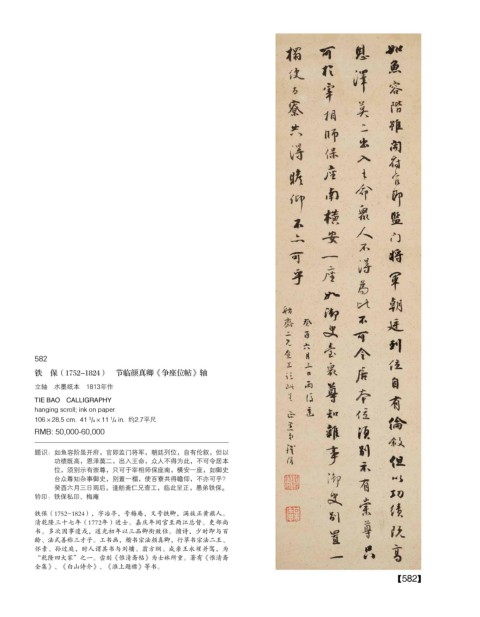 582
铁 保（1752-1824） 节临颜真卿《争座位帖》轴
立轴 水墨纸本 1813年作
TIE BAO CALLIGRAPHY
hanging scroll; ink on paper
106 × 28.5 cm. 41 3/4 × 11 1/4 in. 约2.7平尺
RMB: 50,000-60,000
题识：如鱼容阶虽开府，官即监门将军，朝廷列位，自有伦叙，但以
功绩既高，恩泽莫二，出入王命，众人不得为比，不可令居本
位，须别示有崇尊，只可于宰相师保座南，横安一座，如御史
台众尊知杂事御史，别置一榻，使百寮共得瞻仰，不亦可乎？
癸酉六月三日雨后，
钤印：铁保私印、梅庵
铁保（1752-1824），字冶亭，号梅庵，又号铁卿，满族正黄旗人。
清乾隆三十七年（1772年）进士。嘉庆年间官至两江总督、吏部尚
书。多次因事遣戍，道光初年以三品卿衔致仕。擅诗，少时即与百
龄、法式善称三才子。工书画，楷书宗法颜真卿，行草书宗法二王、
怀素、孙过庭，时人谓其书与刘墉、翁方纲、成亲王永瑆并驾，为
“乾隆四大家”之一。尝刻《惟清斋帖》为士林所重。著有《惟清斋
全集》、《白山诗介》、《淮上题襟》等书。
如鱼容阶虽開府官即监门將軍朝廷列位自有倫叙但以功绩既高
恩澤莫二出入王命衆人不得為比不可令居本位須别示有崇尊只
可於宰相師保座南横安一座如御史臺衆尊知雜事御史别置一
榻使百寮共得瞻仰不亦可乎
癸酉六月三日雨後
【582】